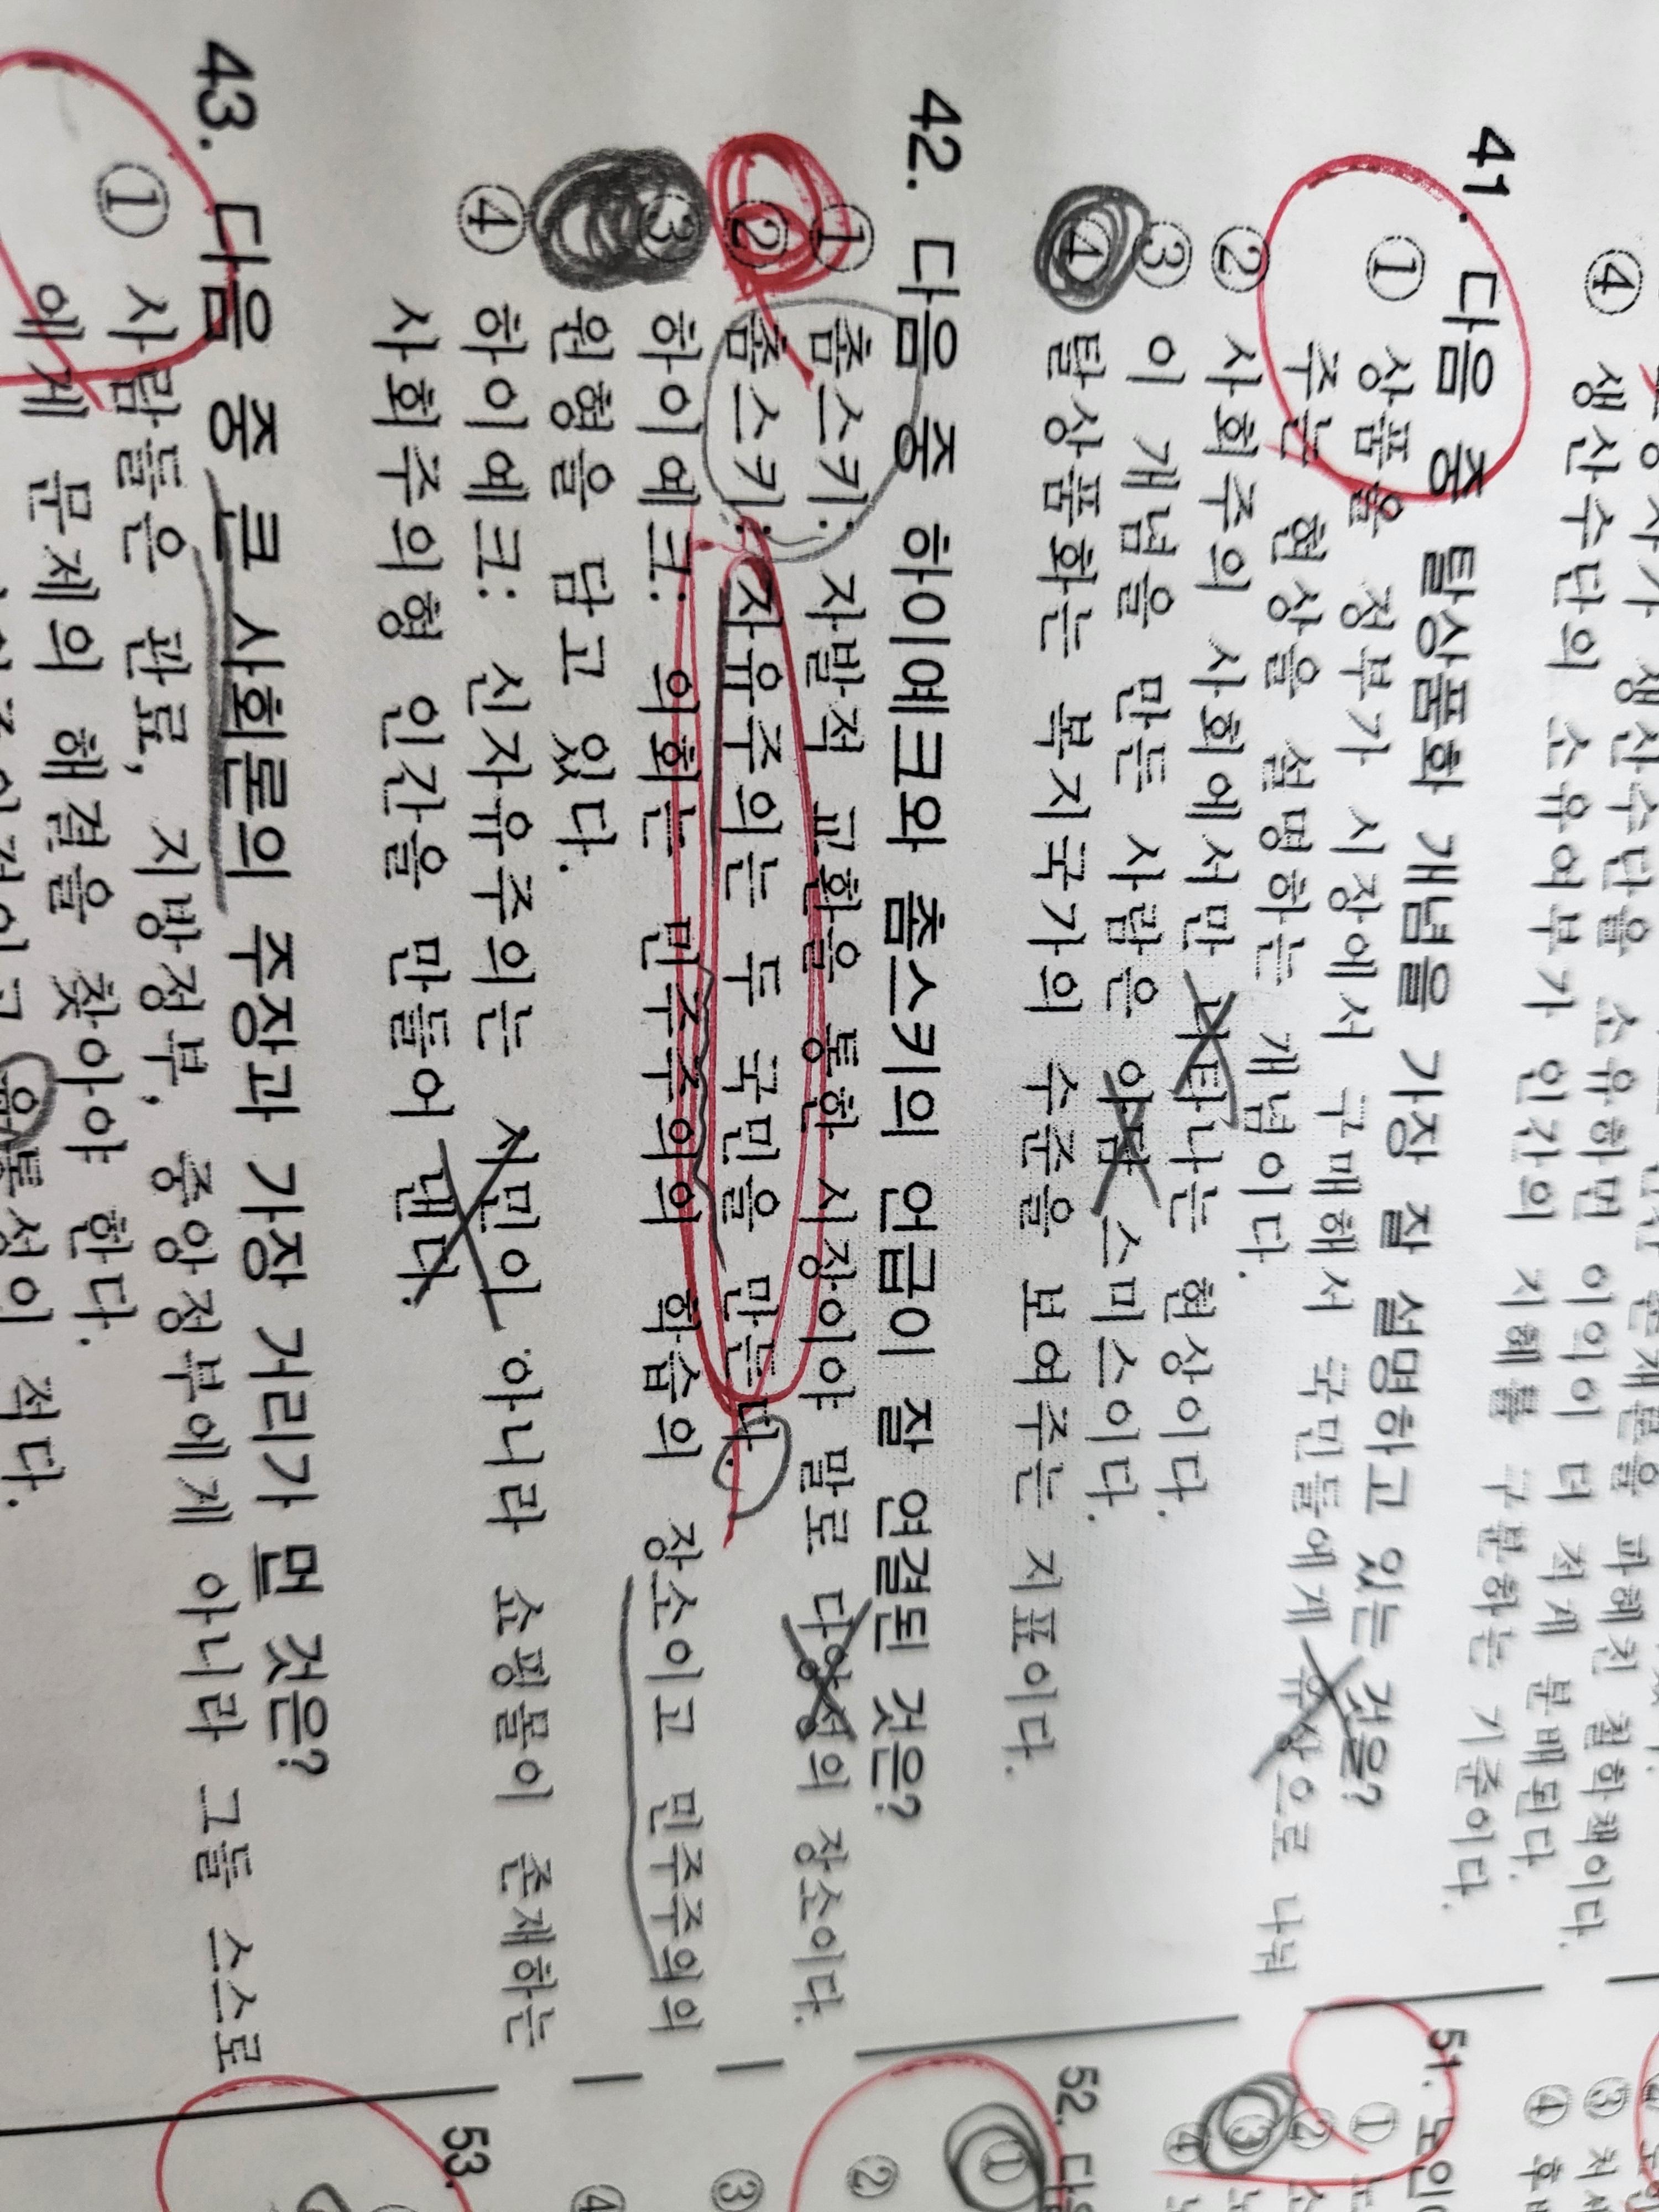 ④ 생산수단의 소유여부가 인간의 지혜를 구분하는 기준이다.
41. 다음 중 탈상품화 개념을 가장 잘 설명하고 있는 것을?
① 상품을 정부가 시장에서 구매해서 국민들에게 유상으로 나눠
주는 현상을 설명하는 개념이다.
② 사회주의 사회에서만 나타나는 현상이다.
③ 이 개념을 만든 사람은 아담 스미스이다.
④ 탈상품화는 복지국가의 수준을 보여주는 지표이다.
42. 다음 중 하이에크와 촘스키의 언급이 잘 연결된 것은?
① 촘스키: 자발적 교환을 통한 시장이야 말로 다양성의 장소이다.
② 촘스키: 자유주의는 두 국민을 만든다.
③ 하이에크: 의회는 민주주의의 학습의 장소이고 민주주의의
원형을 담고 있다.
④ 하이에크: 신자유주의는 시민이 아니라 쇼핑몰이 존재하는
사회주의형 인간을 만들어 낸다.
43. 다음 중 큰 사회론의 주장과 가장 거리가 먼 것은?
① 사람들은 관료, 지방정부, 중앙정부에게 아니라 그들 스스로
에게 문제의 해결을 찾아야 한다.
적다.
51. 노인
①
②
③
④
52. 다음
①
②
③
④
53.